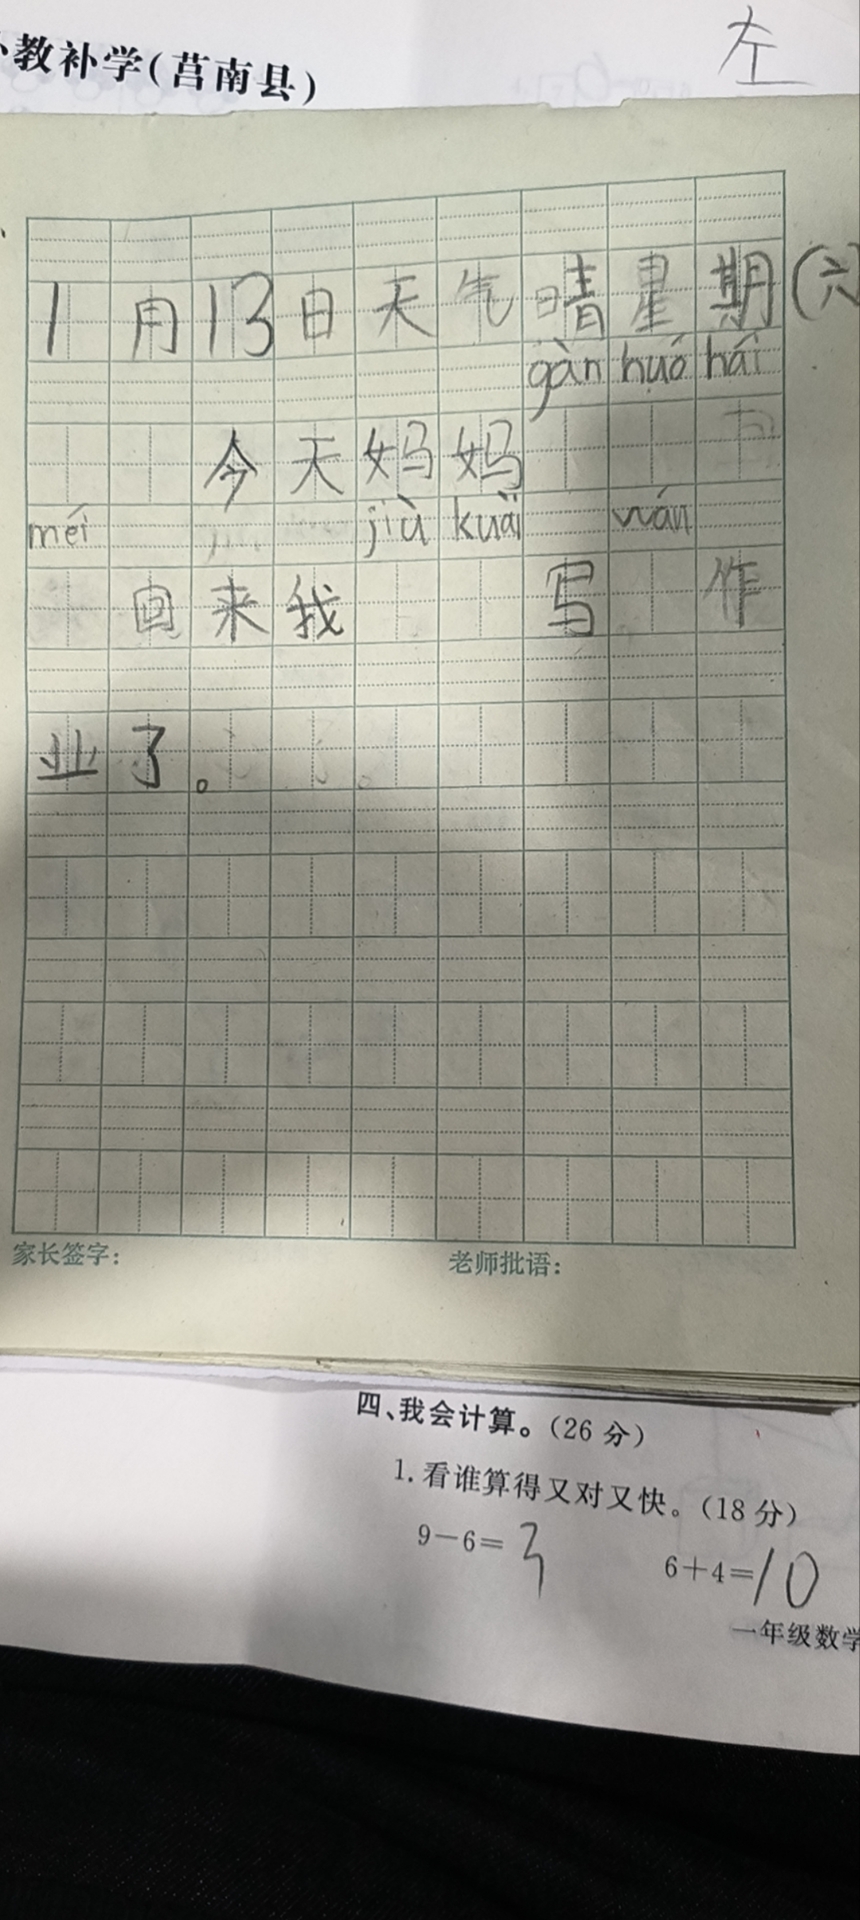 教补学(莒南县)
左
1月13日天气晴星期(六
gàn huó hái
今天妈妈
méi jiù kuài wán
回来我写作
业了。
家长签字: 老师批语:
四、我会计算。(26 分)
1. 看谁算得又对又快。(18 分)
9-6=3 6+4=10
一年级数学